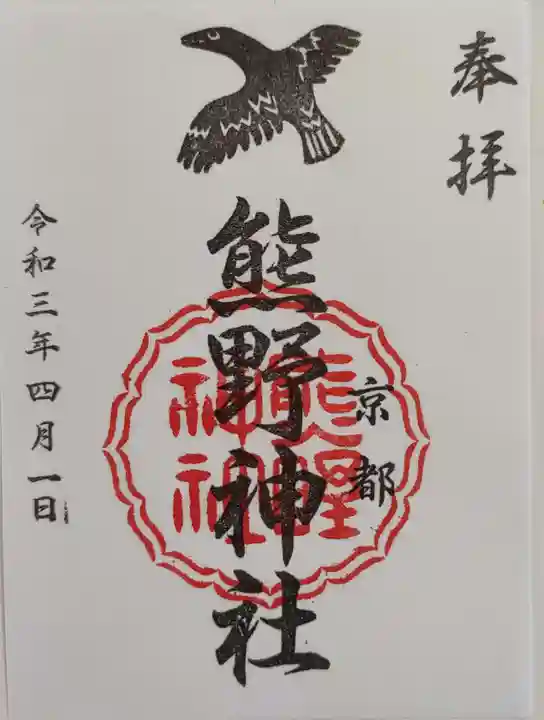 奉拝
京都
熊野神社
熊野
神社
令和三年四月一日